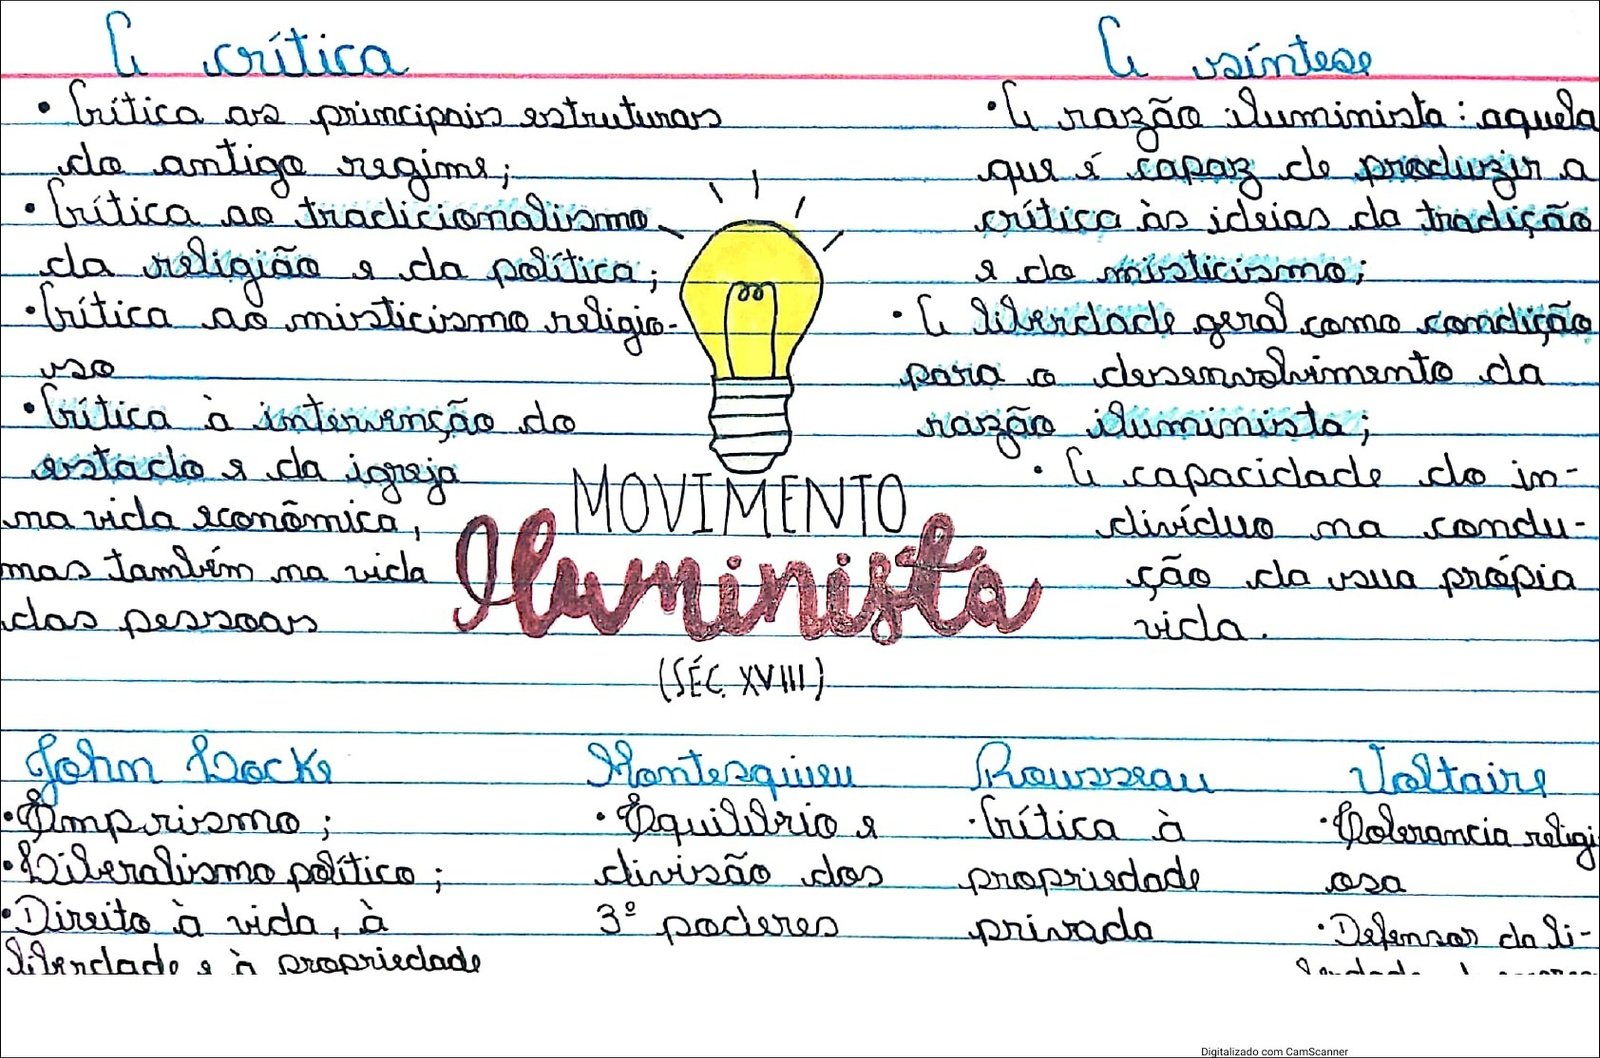 A crítica
• Crítica as principais estruturas
do antigo regime;
• Crítica ao tradicionalismo
da religião e da política;
• Crítica ao misticismo religio-
so
• Crítica à intervenção do
estado e da igreja
na vida econômica,
mas também na vida
das pessoas
A síntese
• A razão iluminista: aquela
que é capaz de produzir a
crítica às ideias da tradição
e do misticismo;
• A liberdade geral como condição
para o desenvolvimento da
razão iluminista;
• A capacidade do in-
divíduo na condu-
ção da sua própia
vida.
MOVIMENTO
Iluminista
(SÉC. XVIII)
John Locke
• Empirismo;
• Liberalismo político;
• Direito à vida, à
liberdade e à propriedade
Montesquieu
• Equilibrio e
divisão dos
3º poderes
Rousseau
• Crítica à
propriedade
privada
Voltaire
• Tolerancia religi
osa
• Defensor da li-
Digitalizado com CamScanner